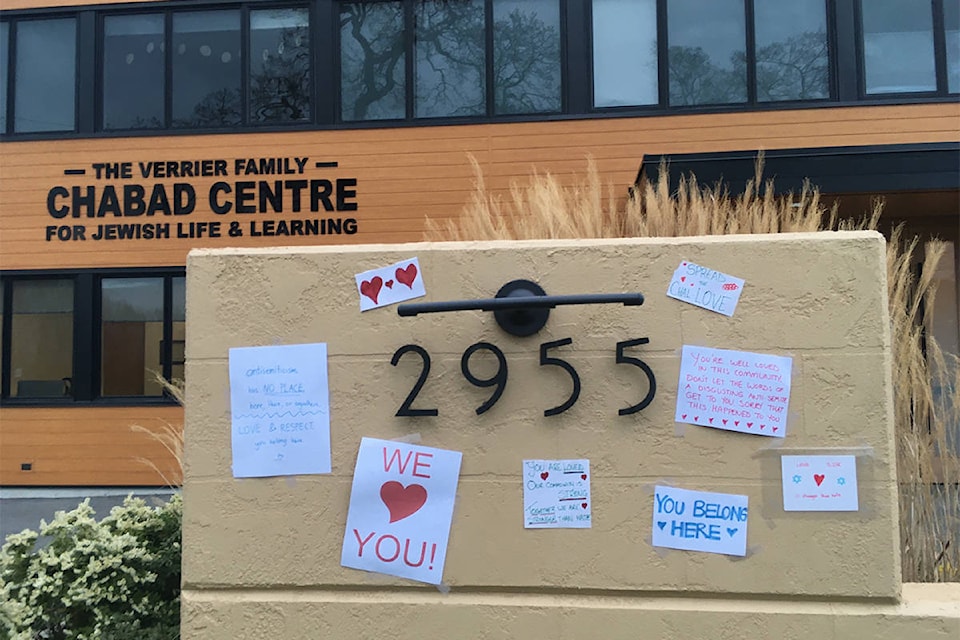 THE VERRIER FAMILY
CHABAD CENTRE
FOR JEWISH LIFE & LEARNING
SPREAD
CHAI LOVE
2955
antisemitism
has NO PLACE
here, there, or anywhere
LOVE & RESPECT
you belong here
YOU'RE WELL LOVED
IN THIS COMMUNITY.
DON'T LET THE WORDS OF
A DISGUSTING ANTI-SEMITE
GET TO YOU SORRY THAT
THIS HAPPENED TO YOU
WE
YOU!
YOU ARE LOVED
OUR COMMUNITY IS
STRONG
TOGETHER WE ARE
STRONGER THAN HATE
YOU BELONG
HERE
is stronger than hate